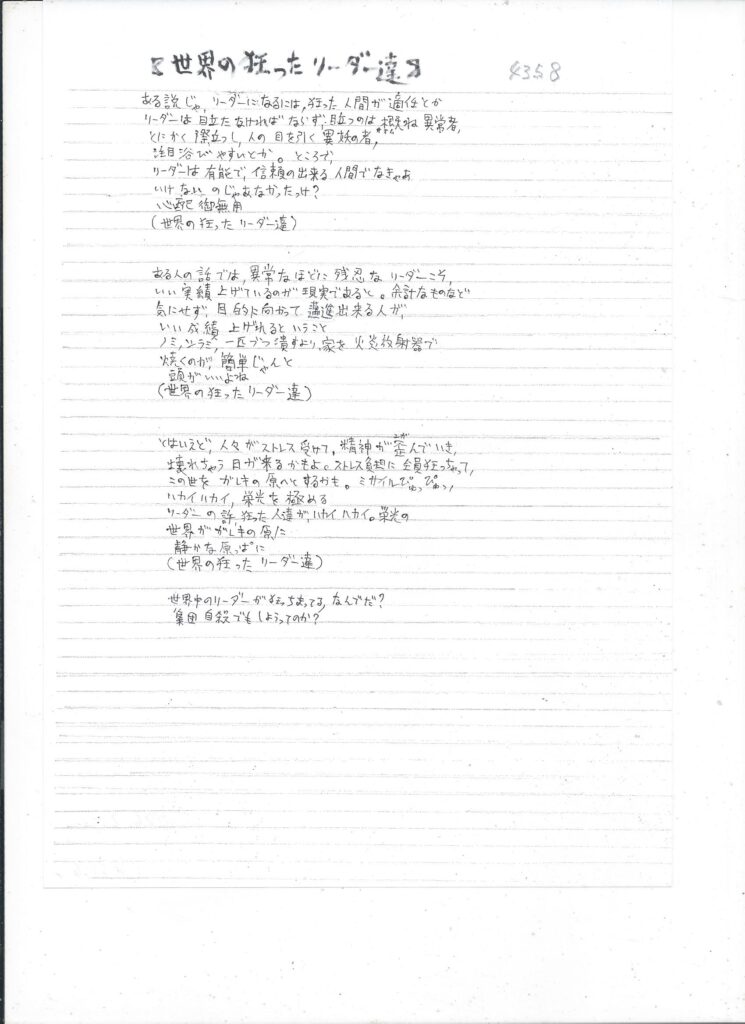 【世界の狂ったリーダー達】 4358
ある説じゃ、リーダーになるには、狂った人間が適任とか
リーダーは目立たなければならず、目立つのは概ね異常者、
とにかく際立つし、人の目を引く異妖の者、
注目浴びやすいとか。ところで、
リーダーは有能で、信頼の出来る人間でなきゃあ
いけないのじゃあなかったっけ?
心配御無用
(世界の狂ったリーダー達)
ある人の話では、異常なほどに残忍なリーダーこそ、
いい実績上げているのが現実であると。余計なものなど
気にせず、目的に向かって邁進出来る人が、
いい成績上げれるということ
ノミ、シラミ、一匹づつ潰すより、家を火炎放射器で
焼くのが、簡単じゃんと
頭がいいよね
(世界の狂ったリーダー達)
とはいえど、人々がストレス受けて、精神が歪んでいき、
壊れちゃう日が来るかもよ。ストレス負担に全員狂っちゃって、
この世をガレキの原へとするかも。ミサイルぴゅっぴゅっ、
ハカイハカイ、栄光を極める
リーダーの許狂った人達が、ハカイハカイ。栄光の
世界がガレキの原に
静かな原っぱに
(世界の狂ったリーダー達)
世界中のリーダーが狂っちまってる、なんでだ?
集団自殺でもしようってのか?